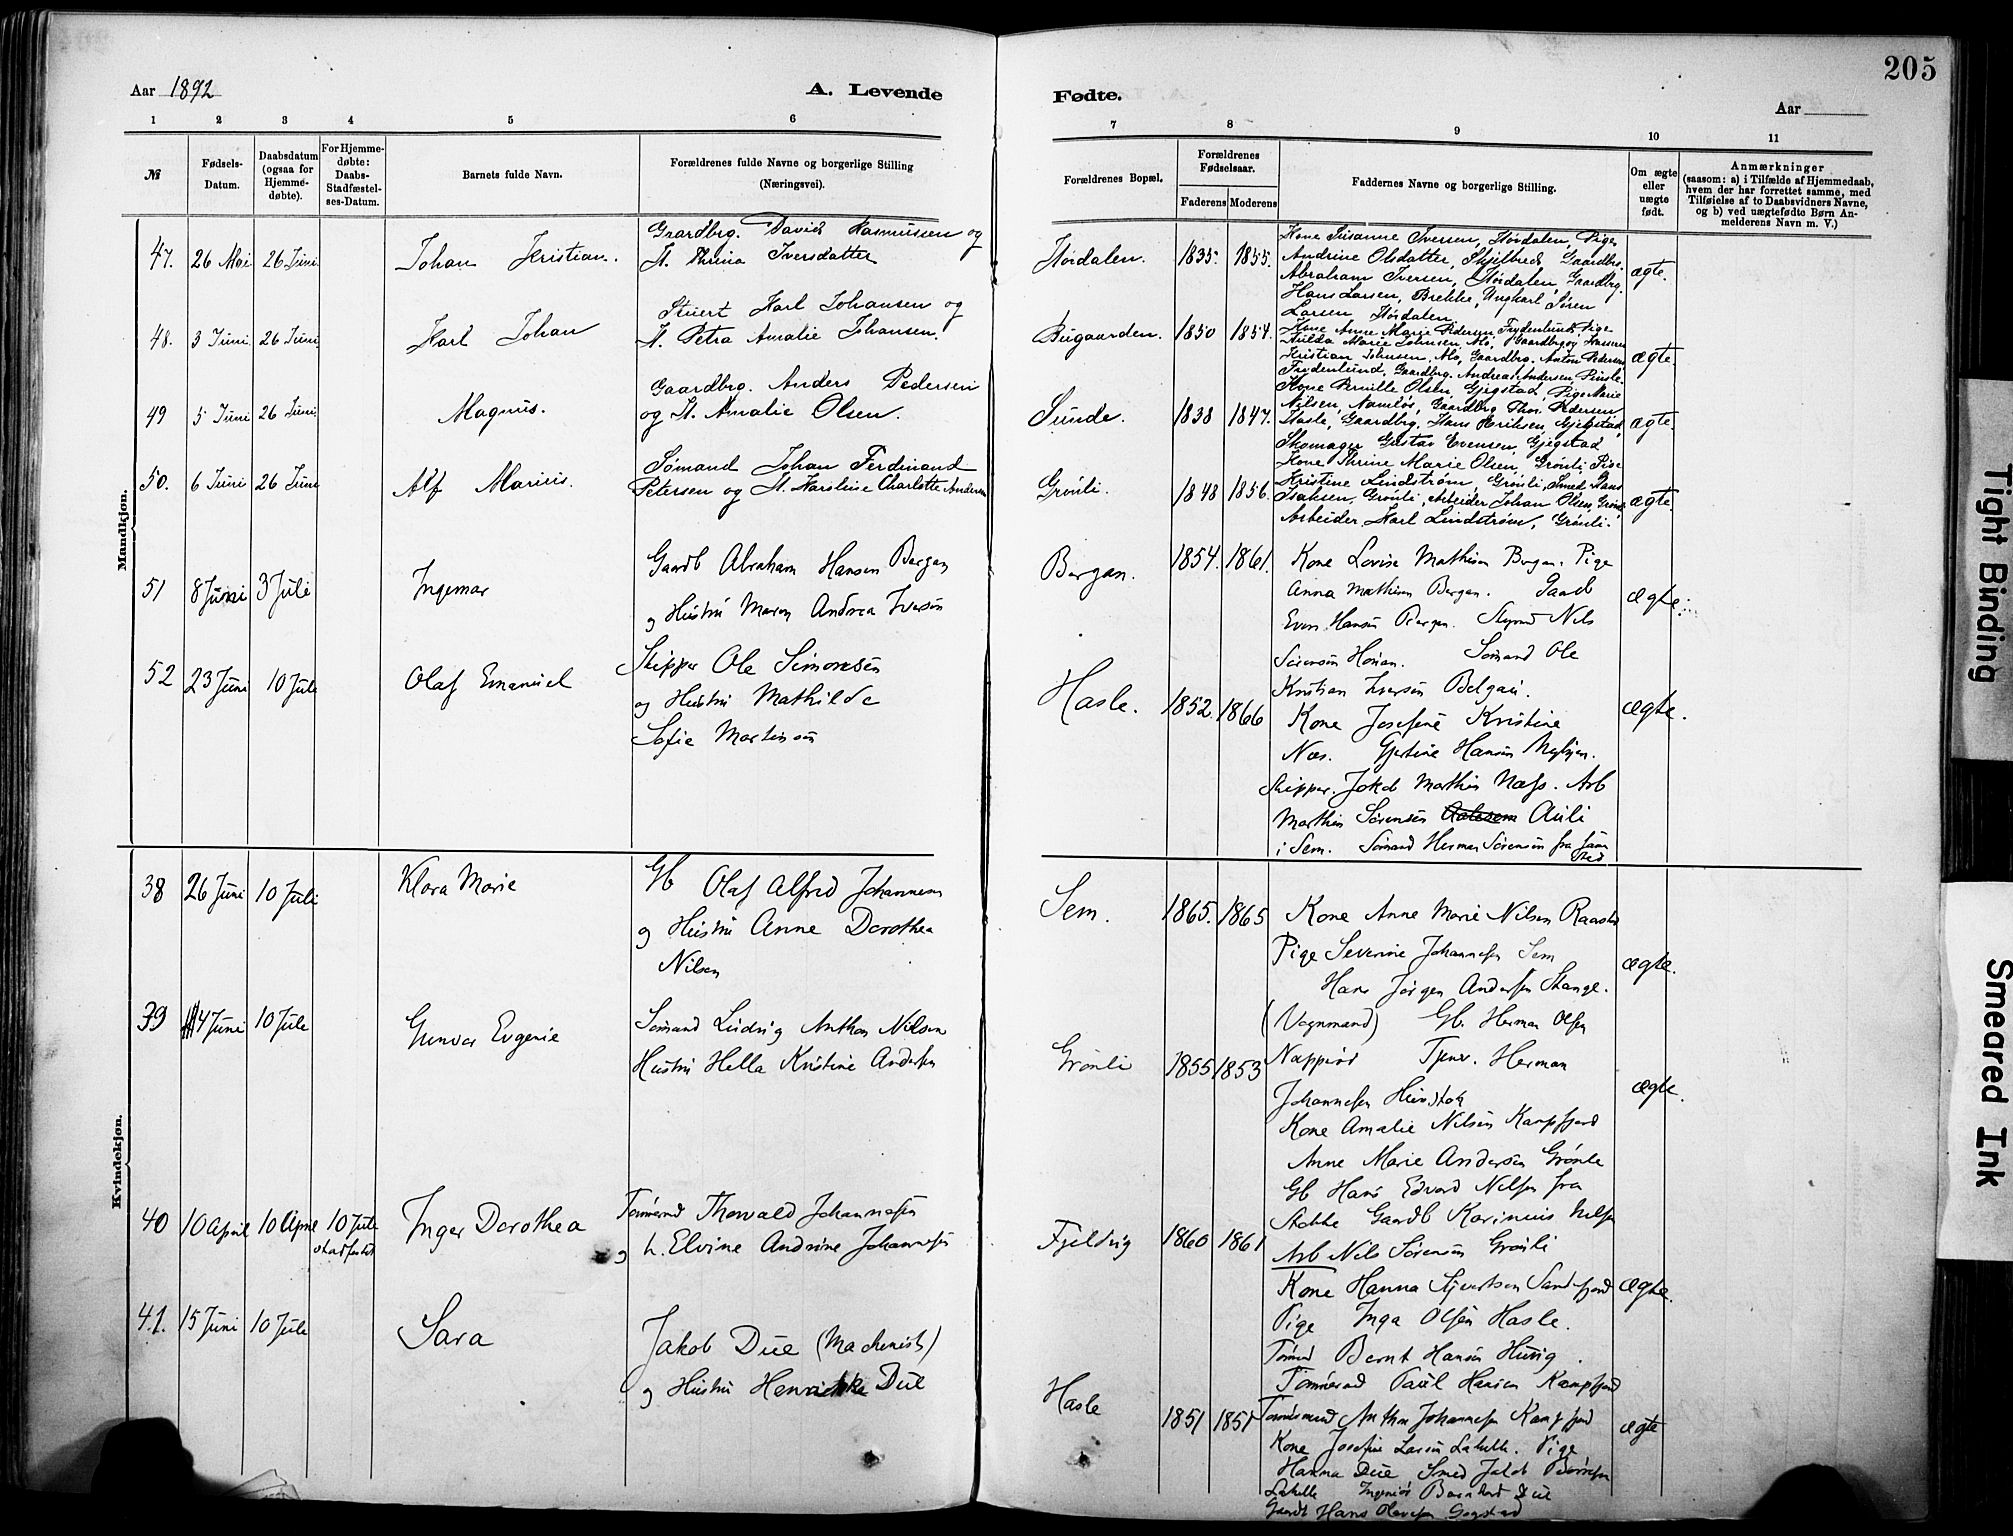 205
Aar 1892
A. Levende
Fødte.
Aar
1 2 3 4 5 6
7 8 9 10 11
№
Fødsels-
Datum.
Daabsdatum
(ogsaa for
Hjemme-
døbte).
For Hjemme-
døbte:
Daabs-
Stadfæstel-
ses-Datum.
Barnets fulde Navn.
Forældrenes fulde Navne og borgerlige Stilling
(Næringsvei).
Forældrenes Bopæl.
Forældrenes
Fødselsaar.
Faderens Moderens
Faddernes Navne og borgerlige Stilling.
Om ægte
eller
uægte
født.
Anmærkninger
(saasom: a) i Tilfælde af Hjemmedaab,
hvem der har forrettet samme, med
Tilføielse af to Daabsvidners Navne,
og b) ved uægtefødte Børn An-
melderens Navn m. V.)
Mandkjøn.
47. 26 Mai 26 Juni. Johan Kristian.
Gaardbrg. David Rasmussen og
H. Thrina Iversdatter
Høidalen. 1835. 1855.
Kone Susanne Iversen, Høidalen, Pige
Andrine Olsdatter, Skjilbred, Gaardbr.
Abraham Iversen, Høidalen, Gaardbrg.
Hans Larsen, Brekke, Ungkarl Søren
Larsen Høidalen.
ægte.
48. 3 Juni 26 Juni Karl Johan
Stuert Karl Johansen og
H. Petra Amalie Johansen.
Bugaarden. 1850 1854.
Kone Anne Marie Pedersen Frydenlund, Pige
Hulda Marie Johnsen, Mo, Gaardbrg
Kristian Johnsen, Mo, Gaardbrg. Anton Pedersen
Frydenlund, Gaardbrg. Andreas Andersen, Pinsle.
ægte.
49 5 Juni 26 Juni Magnus.
Gaardbrg. Anders Pedersen
og H. Amalie Olsen.
Sunde. 1838 1847.
Kone Pernille Olsen, Gjegstad, Pige Marie
Nilsen, Namløs, Gaardbrg Thor Pedersen
Hasle, Gaardbrg. Hans Eriksen, Gjegstad,
Skomager Gustav Evensen, Gjegstad
ægte.
50. 6 Juni 26 Juni Alf Marius.
Sømand Johan Ferdinand
Petersen og H. Karoline Charlotte Andersen
Grønli. 1848 1856.
Kone Thrine Marie Olsen, Grønli, Pige
Kristine Lindstrøm, Grønli, Smed Hans
Isaksen, Grønli, Arbeider Johan Olsen, Grønli
Arbeider Karl Lindstrøm, Grønli.
ægte.
51 8 Juni 3 Juli Ingemar
Gaardb Abraham Hansen Bergan
og Hustru Maren Andrea Iversen
Bergan. 1854. 1861.
Kone Lovise Mathisen Bergan. Pige
Anna Mathisen Bergan. Gaardb
Even Hansen Bergan. Styrmd Nils
Sørensen Hasan. Sømand Ole
Kristian Iversen Belgau.
ægte.
52 23 Juni 10 Juli Olaf Emanuel
Skipper Ole Simonsen
og Hustru Mathilde
Sofie Martinsen
Hasle. 1852. 1866
Kone Josefine Kristine
Næs. Gjertine Hansen Nybyen.
Skipper. Jakob Mathis Næss. Arb
Mathis Sørensen Auli
i Sem. Sømand Herman Sørensen fra samme
Sted
ægte.
Kvindekjøn.
38 26 Juni 10 Juli Klara Marie
Gb Olaf Alfred Johannesen
og Hustru Anne Dorothea
Nilsen
Sem. 1865. 1865
Kone Anne Marie Nilsen Raastad
Pige Severine Johannesen Sem
Hans Jørgen Andersen Stange.
(Vognmand) Gb. Herman Olsen
Næppirød Tjener. Herman
Johannesen
ægte.
39 4 Juni 10 Jule Gunvor Evgenie
Sømand Ludvig Anthon Nilsen
Hustru Hella Kristine Andersen
Grønli 1855 1853
Kone Amalie Nilsen Kampfjord
Anne Marie Andersen Grønli
Gb Hans Edvard Nilsen fra
Stokke Gaardb Karinius Nilsen
Arb Nils Sørensen Grønli
ægte.
40 10 April 10 April 10 Jule
stadfestet
Inger Dorothea
Tømmermd Thorvald Johannesen
og h. Elvine Andrine Johannesen
Fjeldvig 1860 1861
Kone Hanna Sjuertsen Sandefjord
Pige Inga Olsen Hasle.
Tømmd Bernt Hansen
Tømmermd Paul Hansen Kampfjord
Tømmermd Anthon Johannesen Kampfjord
ægte.
41. 15 Juni 10 Jule Sara
Jakob Due (Machinist)
og Hustru Henrikke Due
Hasle 1851 1851
Kone Josefine Larsen Lakelle. Pige
Hanna Due Smed Jakob Pedersen
Lakelle Ingeniør Bernhard Due
Gaardb Hans Olavsen Gogstad
ægte
Tight Binding
Smeared Ink